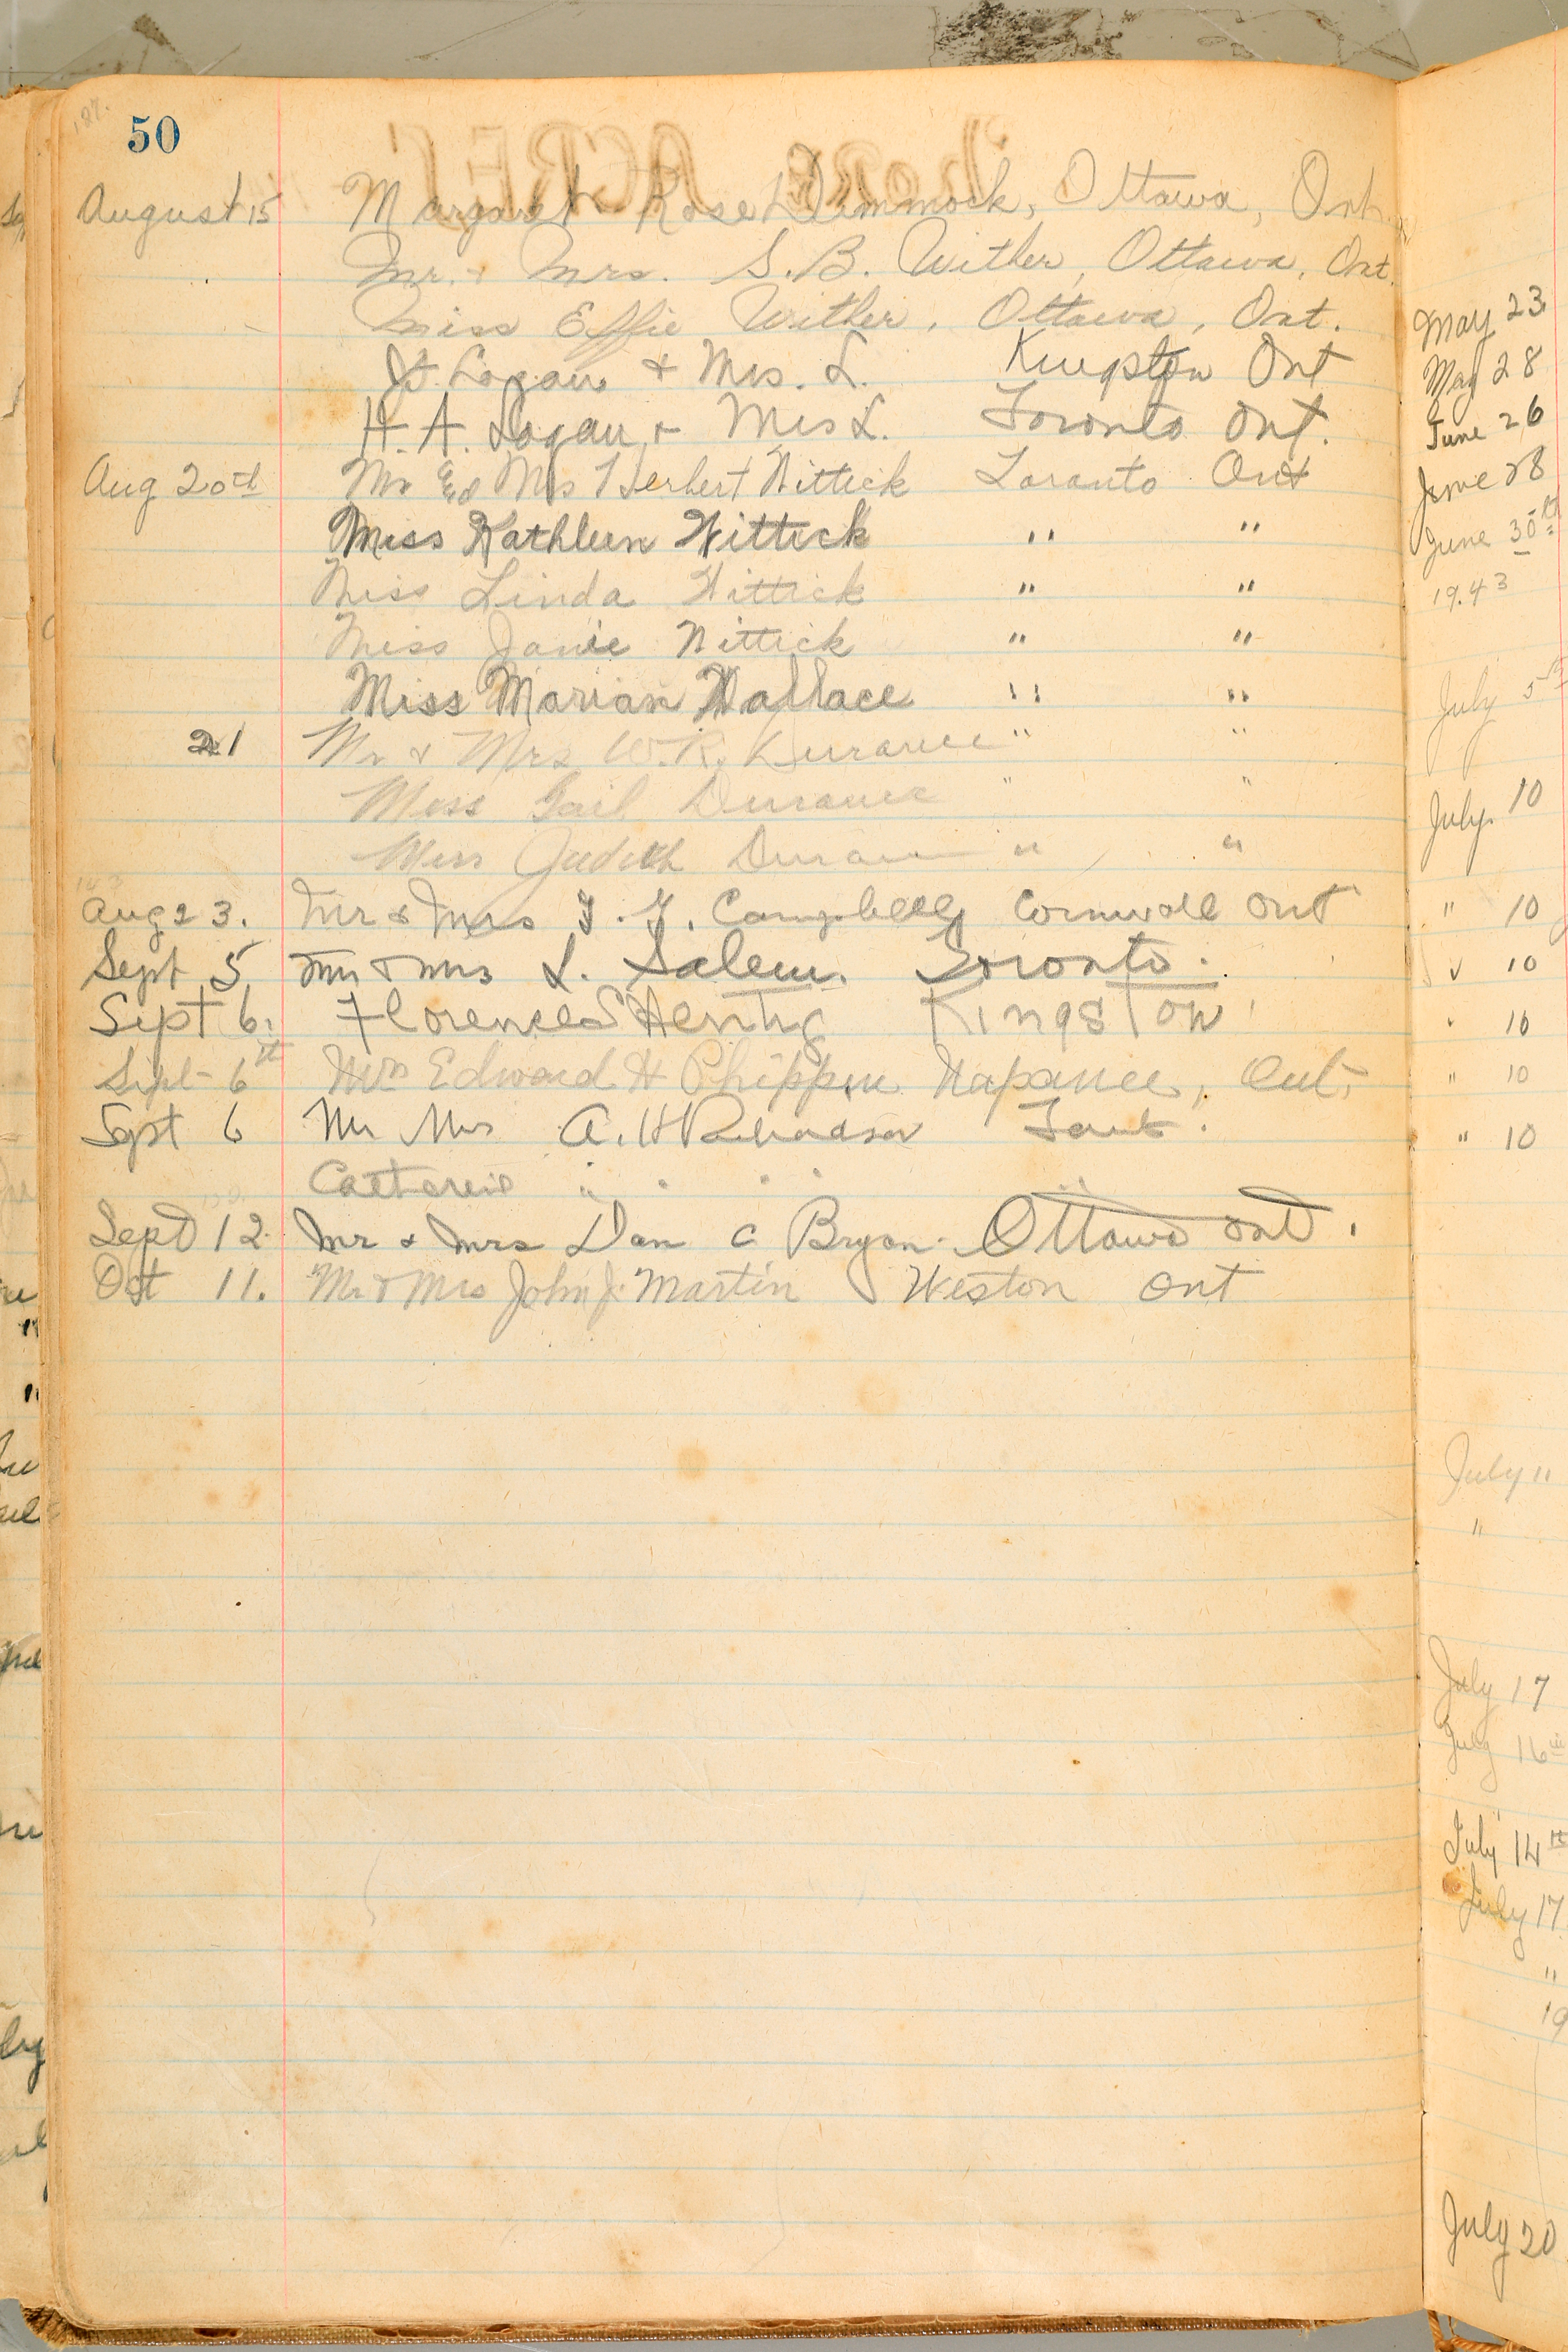 50
August 15 Margaret Rose Dimmock, Ottawa, Ont.
Mr. & Mrs. S.B. Wither, Ottawa, Ont.
Miss Effie Wither, Ottawa, Ont.
Logan & Mrs. L. Kingston Ont
H. A. Logan & Mrs L. Toronto Ont.
Aug 20th Mr Mrs Herbert Wittick Toronto Ont
Miss Kathleen Wittick " "
Miss Linda Wittick " "
Miss Janie Wittick " "
Miss Marian Wallace " "
21 Mr & Mrs W.R. Durance " "
Miss Gail Durance " "
Miss Judith Durance " "
Aug 23. Mr & Mrs Campbell Cornwall Ont
Sept 5 Mr & Mrs L. Salem. Toronto.
Sept 6. Florence Kingston
Sept 6th Mrs Edward H Phippen Napanee, Ont.
Sept 6 Mr Mrs A. H Richardson
" " " "
Sept 12 Mr & Mrs Dan C Bryan Ottawa Ont.
Oct 11. Mr & Mrs John J. Martin Weston Ont
May 23
May 28
June 26
June 28
June 30th
19.43
July 5th
July 10
" 10
" 10
" 10
" 10
" 10
July 11
"
July 17
July 16th
July 14th
July 17
"
19
July 20